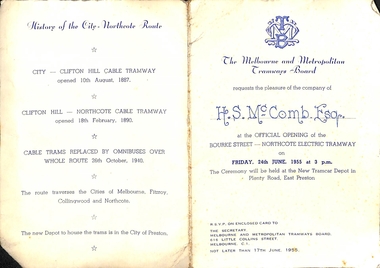 History of the City-Northcote Route
CITY — CLIFTON HILL CABLE TRAMWAY
opened 10th August, 1887.
CLIFTON HILL — NORTHCOTE CABLE TRAMWAY
opened 18th February, 1890.
CABLE TRAMS REPLACED BY OMNIBUSES OVER
WHOLE ROUTE 26th October, 1940.
The route traverses the Cities of Melbourne, Fitzroy,
Collingwood and Northcote.
The new Depot to house the trams is in the City of Preston.
MMTB
The Melbourne and Metropolitan
Tramways Board
requests the pleasure of the company of
H.S. McComb. Esq.
at the OFFICIAL OPENING of the
BOURKE STREET — NORTHCOTE ELECTRIC TRAMWAY
on
FRIDAY, 24th JUNE, 1955 at 3 p.m.
The Ceremony will be held at the New Tramcar Depot in
Plenty Road, East Preston.
R.S.V.P. ON ENCLOSED CARD TO
THE SECRETARY,
MELBOURNE AND METROPOLITAN TRAMWAYS BOARD,
616 LITTLE COLLINS STREET,
MELBOURNE, C.1.
NOT LATER THAN 17TH JUNE, 1955.